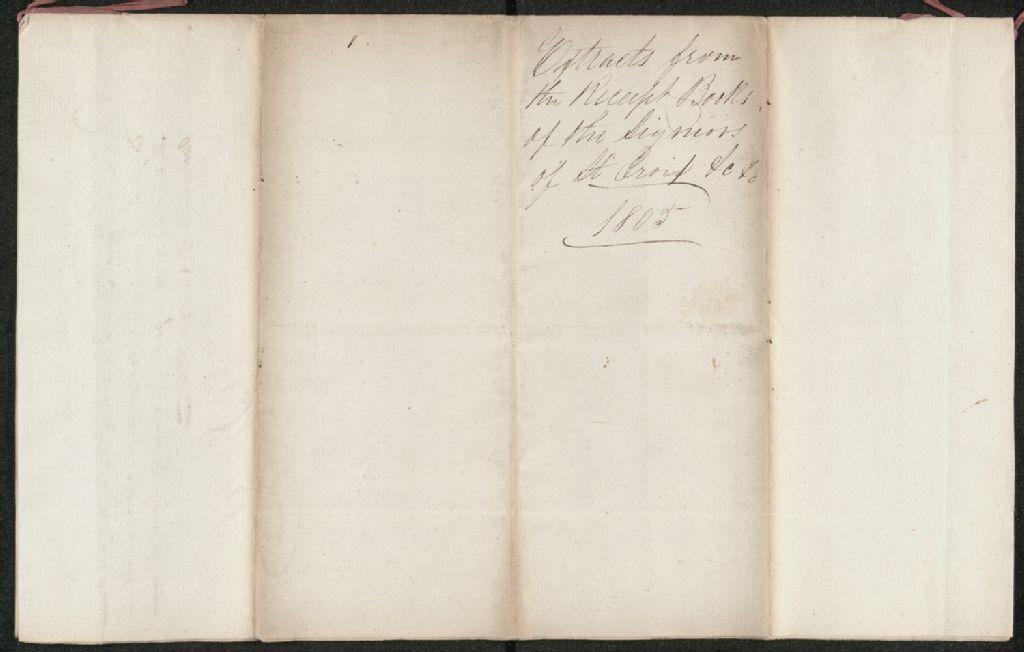 Extracts from
the Receipt Books
of the Signiors
of St Croix &c &c
1805